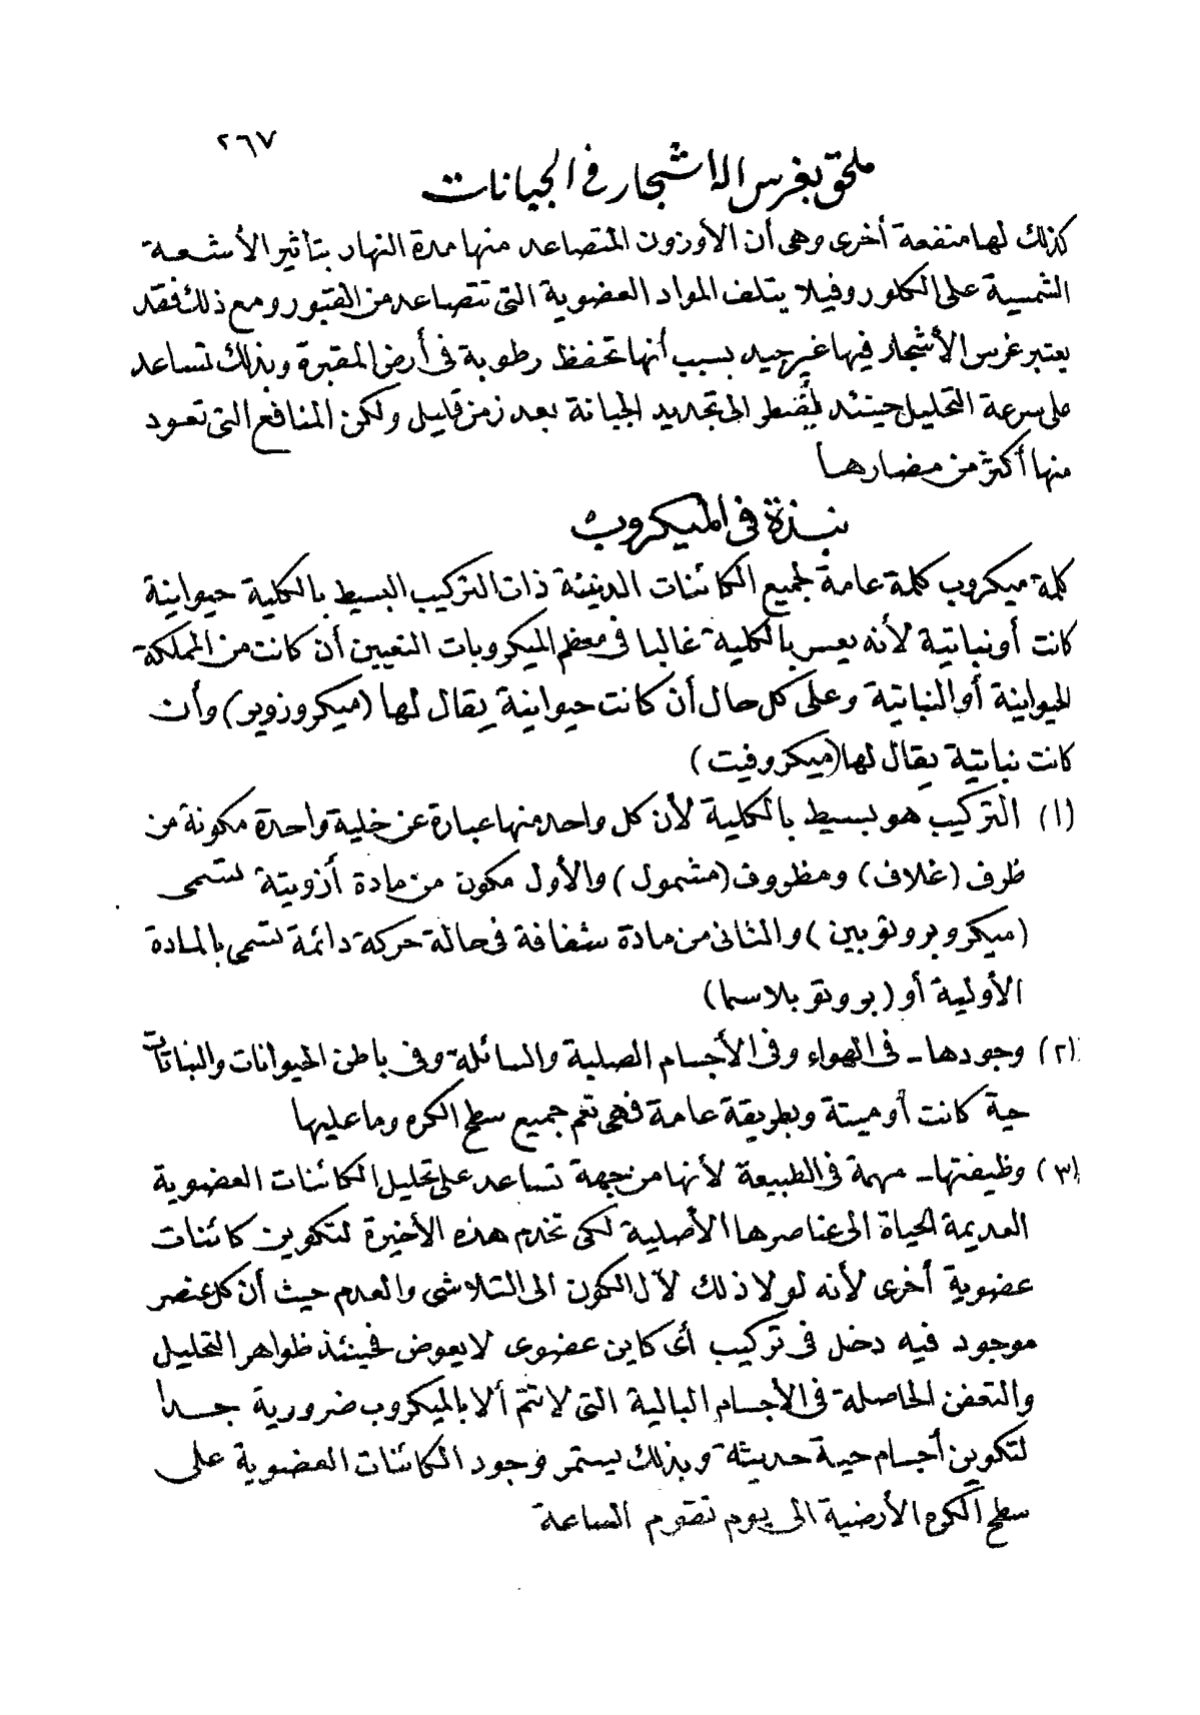 ٢٦٧
ملحق بغرس الاشجار في الجبانات
كذلك لها منفعة أخرى وهى أن الأوزون المتصاعد منها مدة النهار بتأثير الأشعة
الشمسية على الكلوروفيلا يتلف المواد العضوية التى تتصاعد من القبور ومع ذلك فقد
يعتبر غرس الأشجار فيها غير جيد بسبب أنها تحفظ رطوبة فى أرض المقبرة وبذلك تساعد
على سرعة التحليل حينئذ يضطر الى تجديد الجبانة بعد زمن قليل ولكن المنافع التى تعود
منها أكثر من مضارها
نبذة فى الميكروب
كلمة ميكروب كلمة عامة لجميع الكائنات الدنيئة ذات التركيب البسيط بالكلية حيوانية
كانت أو نباتية لأنه يعسر بالكلية غالبا فى معظم الميكروبات التعيين أن كانت من المملكة
الحيوانية أو النباتية وعلى كل حال أن كانت حيوانية يقال لها (ميكروزوير) وأن
كانت نباتية يقال لها (ميكروفيت)
(١) التركيب هو بسيط بالكلية لأن كل واحد منها عبارة عن خلية واحدة مكونة من
ظرف (غلاف) ومظروف (مشمول) والأول مكون من مادة أزوتية تسمى
(ميكروبروتوبين) والثانى من مادة شفافة فى حالة حركة دائمة تسمى بالمادة
الأولية أو (بروتوبلاسما)
(٢) وجودها ـ فى الهواء وفى الأجسام الصلبة والسائلة وفى باطن الحيوانات والنباتات
حية كانت أو ميتة وبطريقة عامة فهى تعم جميع سطح الكره وما عليها
(٣) وظيفتها ـ مهمة فى الطبيعة لأنها من جهة تساعد على تحليل الكائنات العضوية
العديمة الحياة الى عناصرها الأصلية لكى تخدم هذه الأخيرة لتكوين كائنات
عضوية أخرى لأنه لولا ذلك لآل الكون الى التلاشى والعدم حيث أن كل عنصر
موجود فيه دخل فى تركيب أى كاين عضوى لا يعوض فحينئذ ظواهر التحليل
والتعفن الحاصلة فى الأجسام البالية التى لا تتم ألا بالميكروب ضرورية جدا
لتكوين أجسام حية حديثة وبذلك يستمر وجود الكائنات العضوية على
سطح الكره الأرضية الى يوم تقوم الساعة